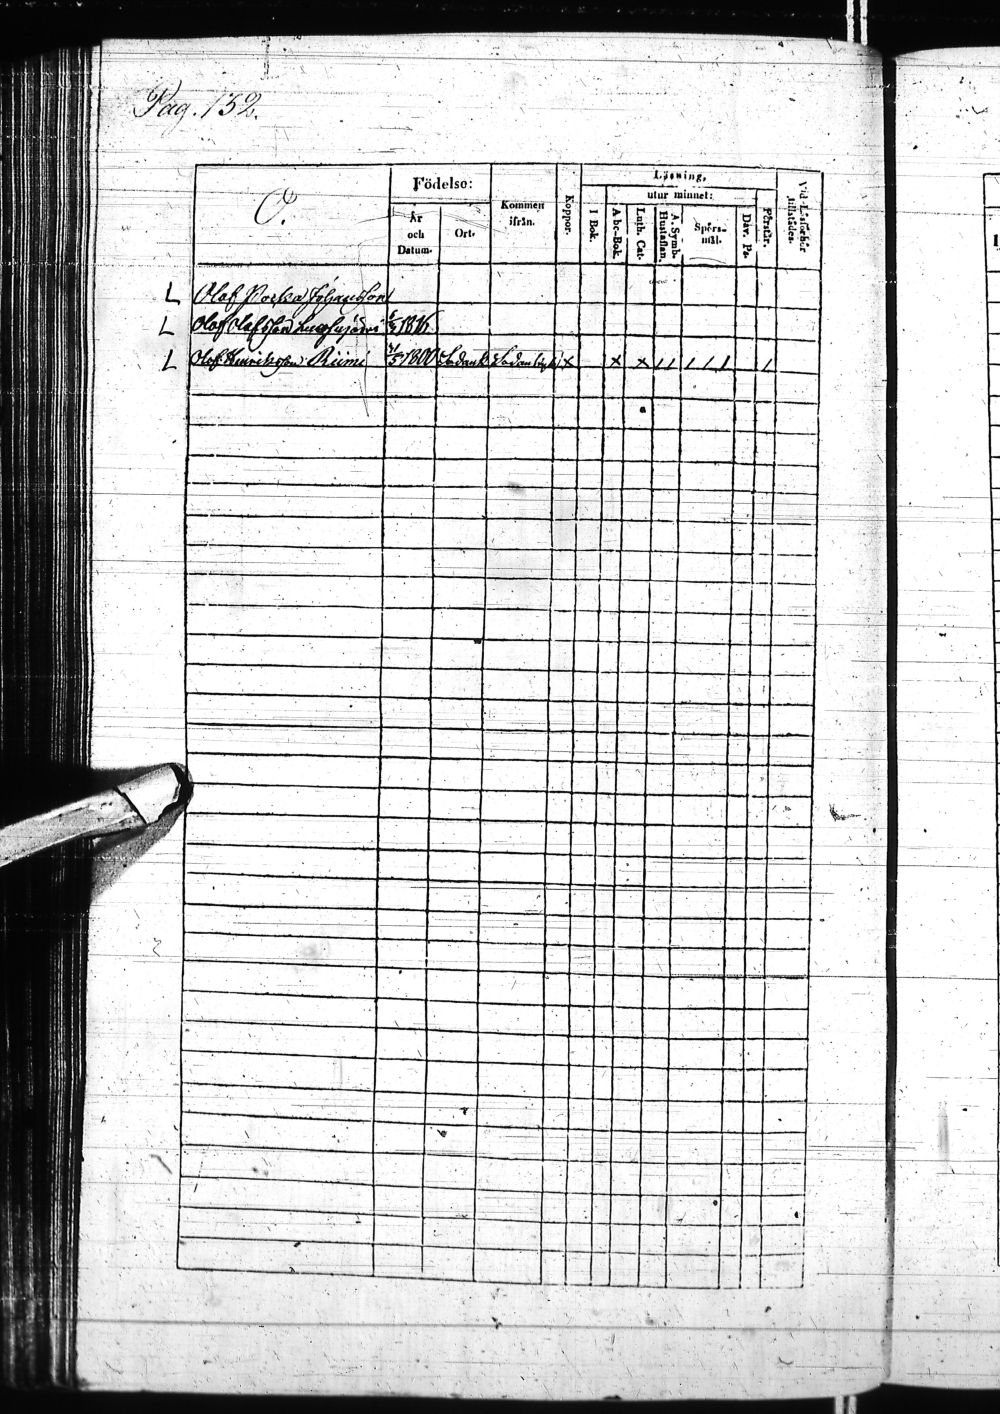 Pag. 152.
O.
Födelse:
År och Datum.
Ort.
Kommen ifrån.
Koppor.
Läsning,
I Bok.
utur minnet:
Abc-Bok.
Luth. Cat.
A. Symb. Hustaflan.
Spörs-mål.
Dav. Ps.
Förstår.
Vid Läsförhör tillstädes.
L Olof Johansson
L Olof Olofsson 1816
L Olof Henriksson Riimi 1800 x x x